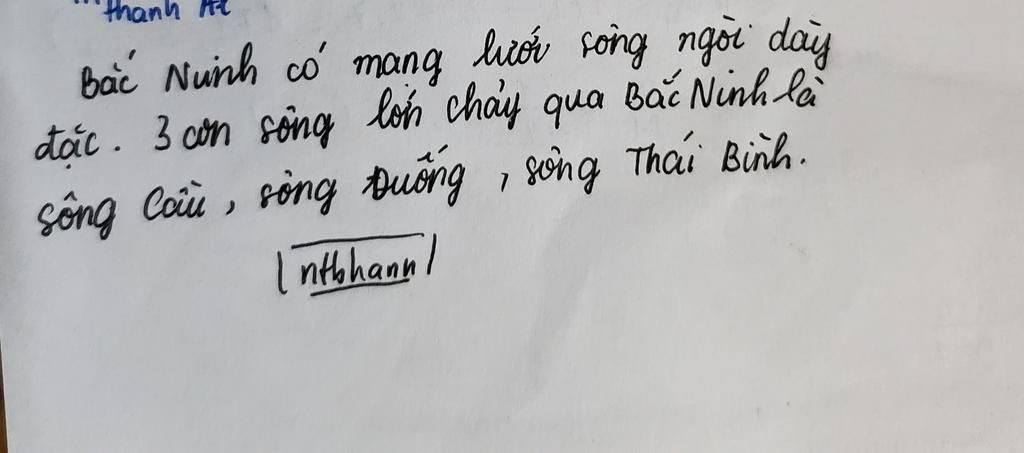 thanh At
Bắc Nuinh có mạng lưới sông ngòi dày
đặc. 3 con sông lớn chảy qua Bắc Ninh là
sông Cầu, sông Đuống, sông Thái Bình.
nthhann